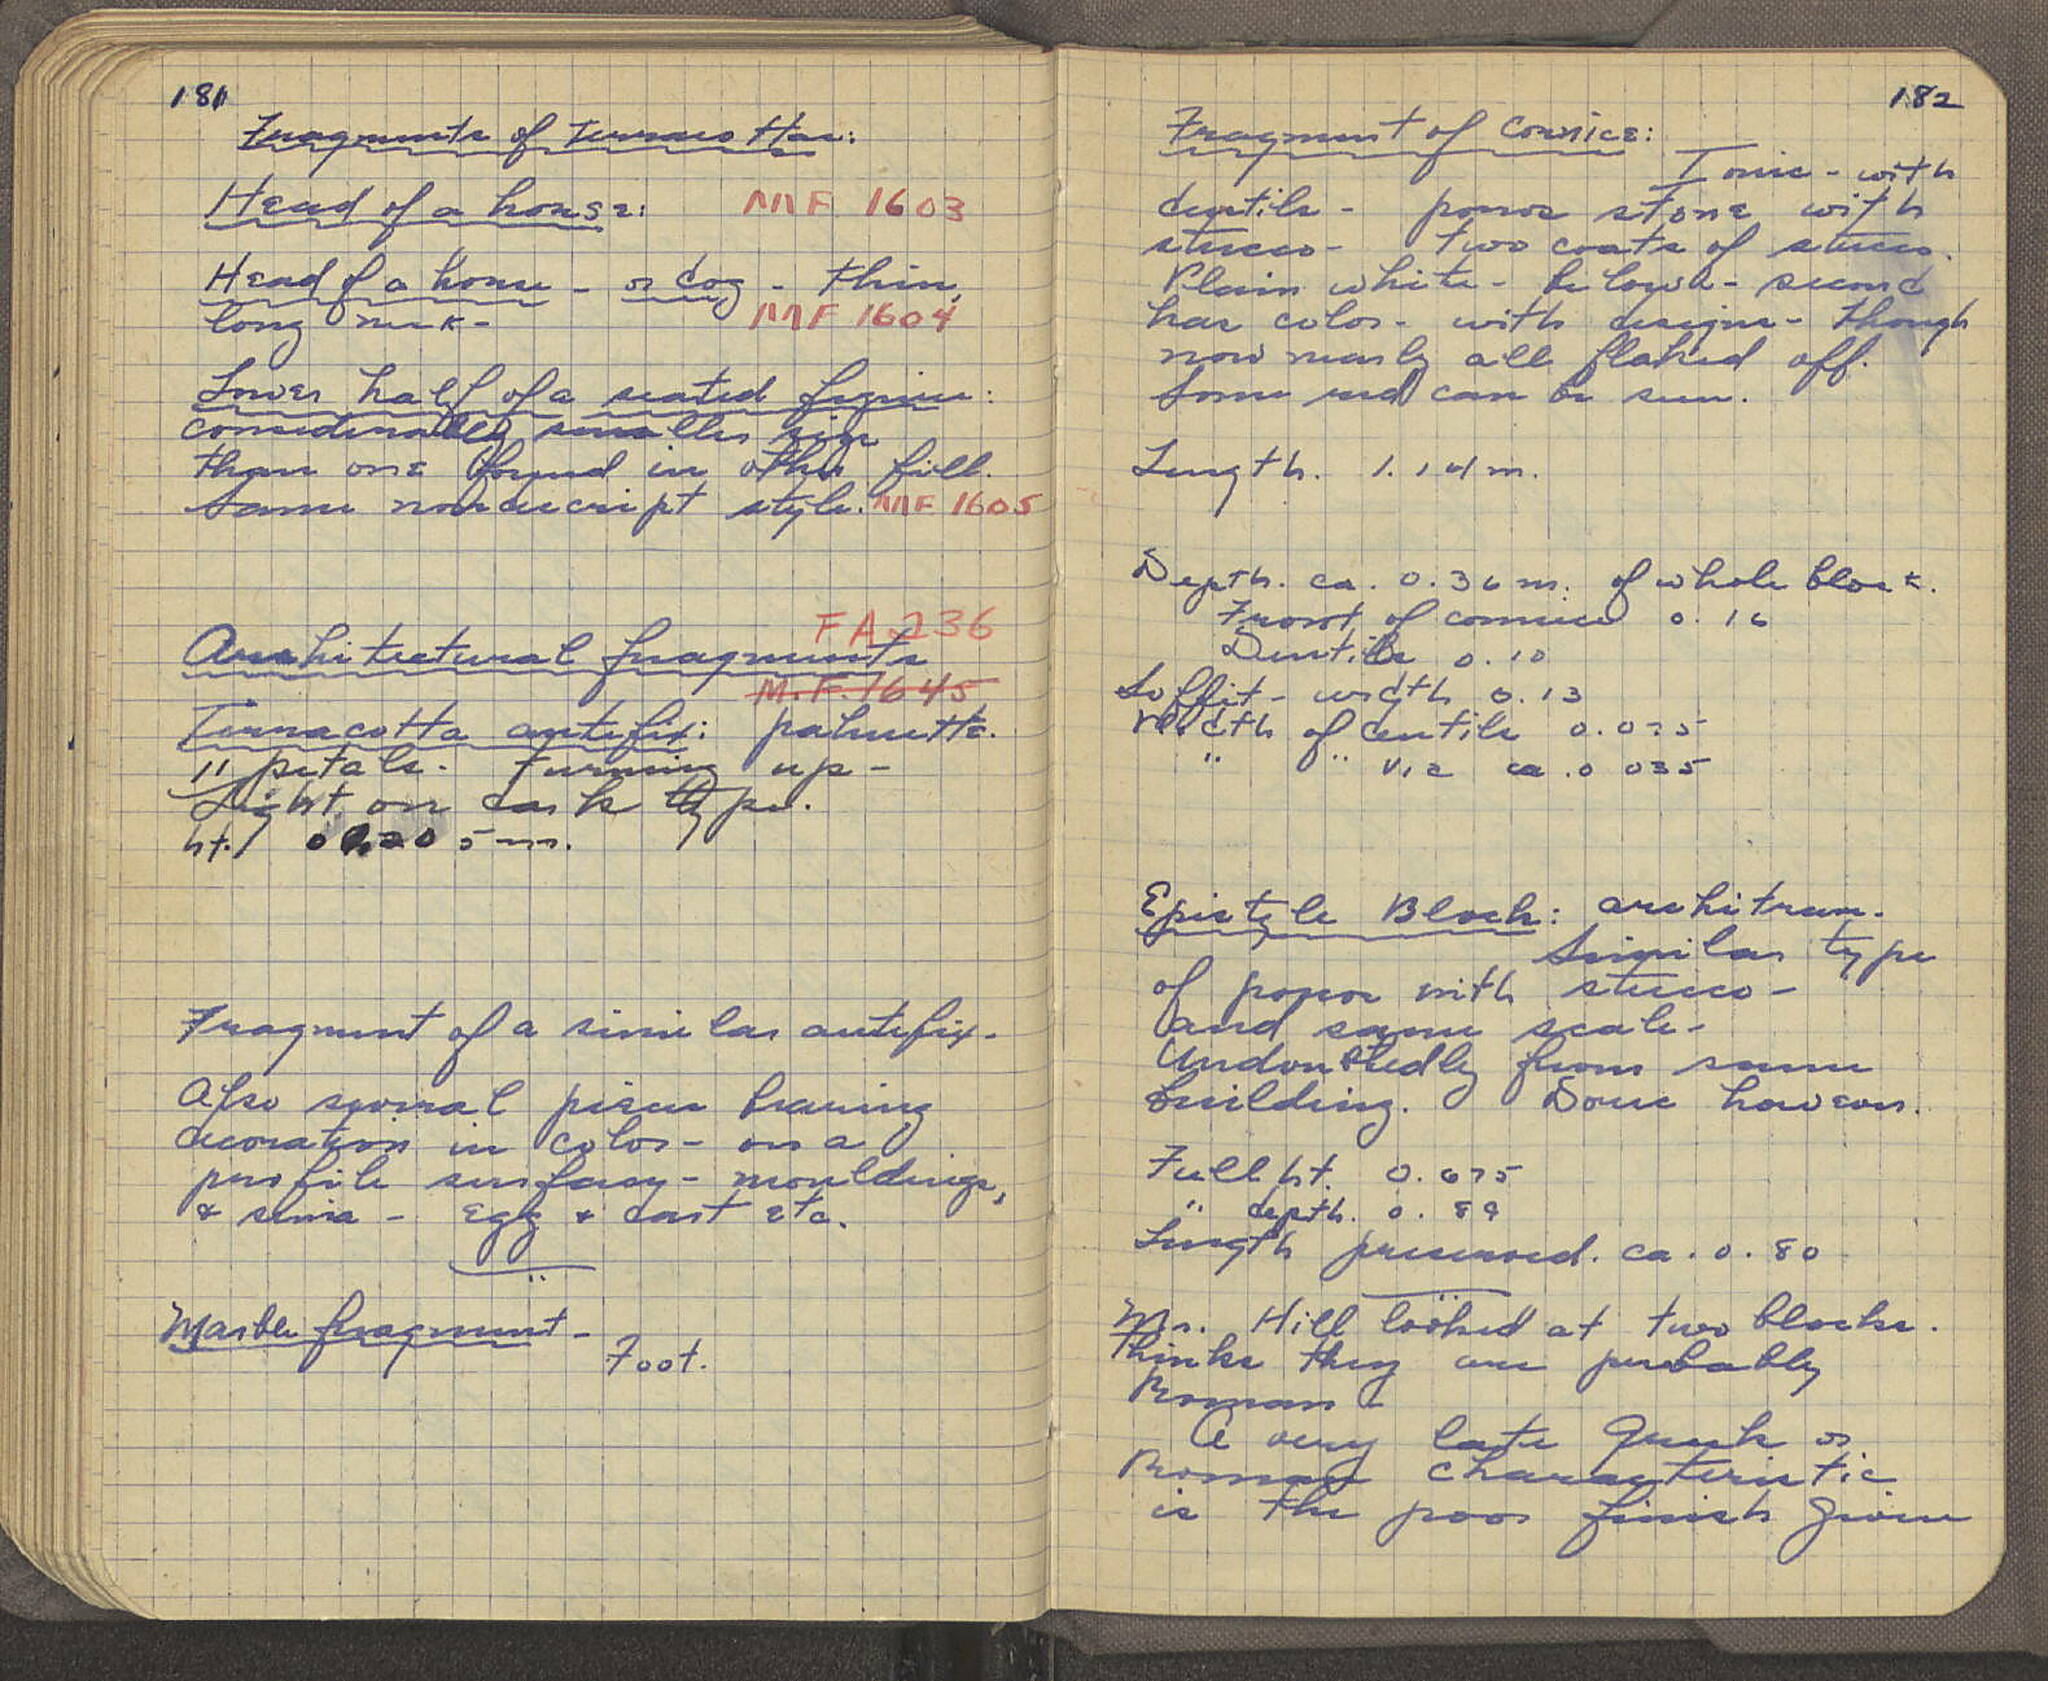 181
Fragments of terracottas:
Head of a horse: MF 1603
Head of a horse - or dog - thin,
long neck - MF 1604
Lower half of a seated figure:
considerably smaller size
than one found in other fill.
Same nondescript style. MF 1605
FA 236
Architectural fragments
M.F. 1645
Terracotta antefix: palmette.
11 petals. Turning up -
Light on dark type.
ht. 0.205 m.
Fragment of a similar antefix.
Also several pieces bearing
decoration in color - on a
profile surface - mouldings,
& sima - egg & dart etc.
Marble fragment -
Foot.
182
Fragment of cornice:
Ionic - with
dentils - poros stone with
stucco - two coats of stucco.
Plain white - below - second
has color - with designs - though
now nearly all flaked off.
Some red can be seen.
Length. 1.14 m.
Depth. ca. 0.36 m. of whole block.
Front of cornice 0.16
Dentils 0.10
Soffit - width 0.13
Width of dentils 0.075
" " via ca. 0 035
Epistyle Block: architrave.
Similar type
of poros with stucco -
and same scale -
Undoubtedly from same
building. Doric however.
Full ht. 0.675
" depth. 0.89
Length preserved. ca. 0.80
Mr. Hill looked at two blocks.
Thinks they are probably
Roman
A very late Greek or
Roman characteristic
is the poor finish given